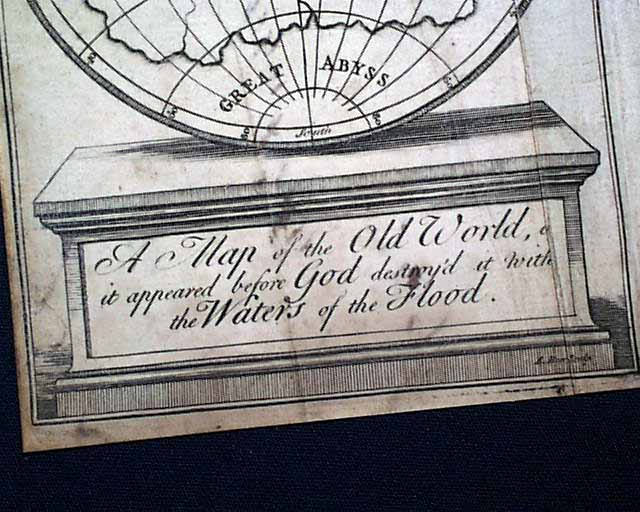 GREAT ABYSS
South
A Map of the Old World,
it appeared before God destroy'd it with
the Waters of the Flood.